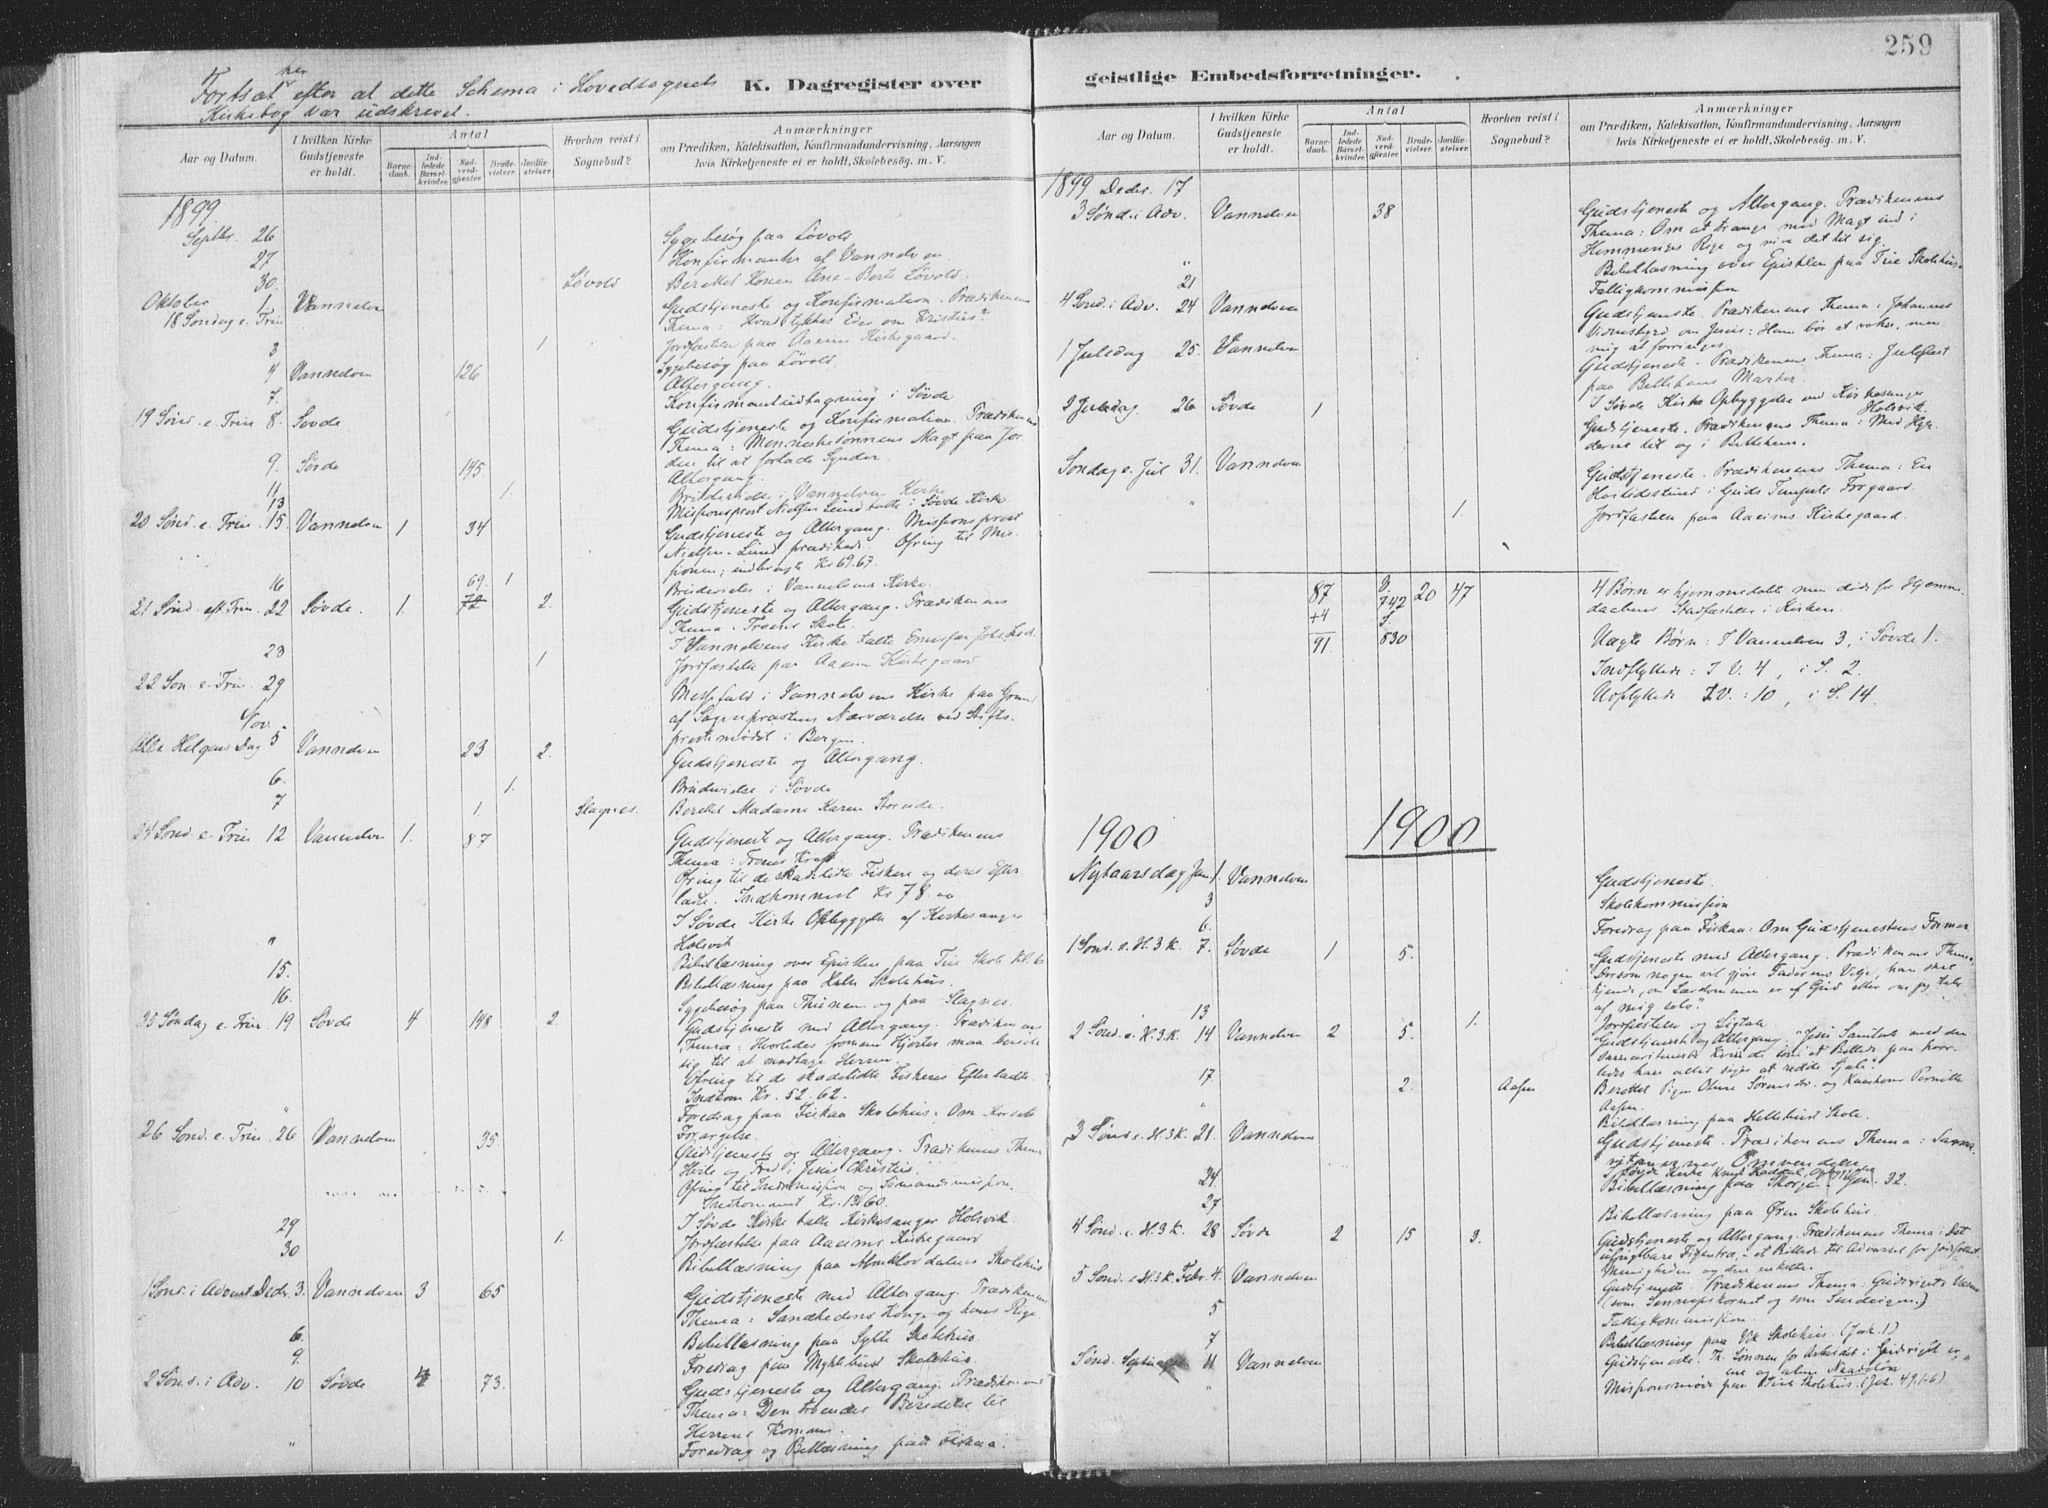 259
Fortsat her efter at dette Schema i Hovedsognets
Kirkebog var udskrevet.
K. Dagregister over
geistlige Embedsforretninger.
Aar og Datum.
I hvilken Kirke Gudstjeneste er holdt.
Antal
Barne-daab.
Ind-ledede Barsel-kvinder.
Nad-verd-gjæster.
Brude-vielser.
Jordfæ-stelser.
Hvorhen reist i Sognebud?
Anmærkninger
om Prædiken, Katekisation, Konfirmandundervisning, Aarsagen
hvis Kirketjeneste ei er holdt, Skolebesøg m. V.
1899
Septbr. 26 Sygebesøg paa Løvold
27 Konfirmanter af Vannelven
30. Løvold Berettet Konen Ane-Berte Løvold.
Oktober 1. Vannelven Gudstjeneste og Konfirmation. Prædikenens
18 Søndag e. Trin Thema: Hvad tykkes Eder om Kristus?
3 1 Jordfæstelse paa Aaeims Kirkegaard.
4 Vannelven 126 Sygebesøg paa Løvold.
Altergang.
7. Konfirmantuddtagning i Søvde
19 Sønd. e. Trin 8. Søvde Gudstjeneste og Konfirmation. Prædikenens
Thema: Menneskesønnens Magt paa Jor-
den til at forlade Synder.
9. Søvde 145 Altergang.
11 1. Brudevielse i Vannelven Kirke
13 Missionsprest Nielsen Lund talte i Søvde Kirke
20 Sønd. e. Trin. 15. Vannelven 1 34 Gudstjeneste og Altergang. Missionsprest
Nielsen-Lund prædikede. Ofring til Mis-
sionen; indbragte Kr 69.67.
16 1 Brudevielse i Vannelvens Kirke.
21 Sønd. eft. Trin. 22 Søvde. 1. 69. 72 2. Gudstjeneste og Altergang. Prædikenens
Thema: Troens Skole.
I Vannelvens Kirke talte Emissær
23 1 Jordfæstelse paa Aaeim Kirkegaard
22 Søn e. Trin. 29 Messefald i Vannelvens Kirke paa Grund
af Sogneprestens Nærværelse ved Stifts-
prestemødet i Bergen.
Nov.
Alle Helgens Dag 5 Vannelven 23 2. Gudstjeneste og Altergang.
6. 1. Brudevielse i Søvde
7 1. Slagnes. Berettet Madame Karen
24 Sønd. e. Trin 12 Vannelven 1. 87 Gudstjeneste og Altergang. Prædikenens
Thema: Troens Kraft
Ofring til de skadelidte Fiskere og deres Efter-
ladte. Indkommet Kr 78.00
I Søvde Kirke Opbyggelse af Kirkesanger
Holsvik
15. Bibellæsning over Epistlen paa Trie Skolehus
16. Bibellæsning paa Skolehus.
Sygebesøg paa Thunem og paa Slagnes.
25 Søndag e. Trin. 19 Søvde 4 148 2. Gudstjeneste med Altergang. Prædikenens
Thema: Hvorledes fromme Hjerter maa berede
sig til at modtage Herren.
Ofring til de skadelidte Fiskeres Efterladte.
Indkom Kr. 52.62.
Foredrag paa Fiskaa Skolehus: Om Korsets
Forargelse.
26 Sønd. e. Trin. 26 Vannelven 35 Gudstjeneste og Altergang. Prædikenens Thema
Hvile og Fred i Jesus Christus.
Ofring til Indremission og Sømandsmission.
Indkommet Kr. 13.60.
I Søvde Kirke talte Kirkesanger Holsvik.
29 1. Jordfæstelse paa Aaeims Kirkegaard
30 Bibellæsning paa Almklovdalens Skolehus
1 Sønd. i Advent Decbr. 3. Vannelven 3 65 Gudstjeneste med Altergang. Prædikenens
Thema: Sandhedens Konge og hans Rige.
6. Bibellæsning paa Sylte Skolehus.
9. Foredrag paa Myklebust Skolehus.
2 Sønd. i Adv. 10 Søvde 4 73. Gudstjeneste og Altergang. Prædikenens
Thema: Den troendes Beredelse til
Herrens Komme.
" Foredrag og Bibellæsning paa Fiskaa.
Aar og Datum.
I hvilken Kirke Gudstjeneste er holdt.
Antal
Barne-daab.
Ind-ledede Barsel-kvinder.
Nad-verd-gjæster.
Brude-vielser.
Jordfæ-stelser.
Hvorhen reist i Sognebud?
Anmærkninger
om Prædiken, Katekisation, Konfirmandundervisning, Aarsagen
hvis Kirketjeneste ei er holdt, Skolebesøg m. V.
1899 Decbr. 17
3 Sønd. i Adv. Vannelven 38 Gudstjeneste og Altergang. Prædikenens
Thema: Om at trænge med Magt ind i
Himmeriges Rige og rive det til sig.
" Bibellæsning over Epistlen paa Trie Skolehus
21 Fattigkommission
4 Sønd. i Adv. 24 Vannelven Gudstjeneste. Prædikenens Thema: Johannes
Vidnesbyrd om Jesus: Ham bør at vokse, men
mig at forringes.
1 Juledag 25. Vannelven Gudstjeneste. Prædikenens Thema: Julefest
paa Betlehems Marker.
2 Juledag 26 Søvde 1 I Søvde Kirke Opbyggelse ved Kirkesanger
Holsvik.
Gudstjeneste. Prædikenens Thema: Med Hyr-
derne til og i Betlehem.
Søndag e. Jul 31. Vannelven Gudstjeneste. Prædikenens Thema: En
Høitidsstund i Guds Tempels Forgaard.
" 1 Jordfæstelse paa Aaeims Kirkegaard.
87 V. 742 20 47 4 Børn er hjemmedøbte men døde før Hjemme-
+4 S. daabens Stadfæstelse i Kirken.
91. 530 Uægte Børn: I Vannelven 3, i Søvde 1.
Indflyttede: I V. 4, i S. 2.
Udflyttede I V.: 10, i S. 14.
1900 1900
Nytaarsdag Jan 1. Vannelven Gudstjeneste.
3 Skolekommission
6. Foredrag paa Fiskaa: Om Gudstjenestens Former
1 Sønd. e. H. 3 K. 7. Søvde 1 5. Gudstjeneste med Altergang. Prædikenens Thema
Dersom nogen vil gjøre Faderens Vilje, han skal
kjende, om Lærdommen er af Gud eller om jeg taler
af mig selv".
13 1. Jordfæstelse og Ligtale
2 Sønd. e. H. 3 K. 14 Vannelven 2 5. Gudstjeneste og Altergang. "Jesu Samtale med den
samaritanske Kvinde som et Billede paa hvor-
ledes han altid søger at redde Sjæle".
17. 2. Aasen Berettet Pigen Oline Sørensdr. og Kaarkone Pernille
Aasen.
" Bibellæsning paa Hellebust Skole.
3 Sønd e. H. 3 K. 21. Vannelven Gudstjeneste. Prædikenens Thema: Sama-
ritanernes Omvendelse
24 Bibellæsning paa Skorge. 32.
27 Bibellæsning paa Øren Skolehus
4 Sønd. e. H. 3 K. 28 Søvde 2 15 3. Gudstjeneste og Altergang. Prædikenens Thema: Det
ufrugtbare Figentræ, et Billede til Advarsel for Jødefolket
Menigheden og den enkelte.
5 Sønd. e H. 3 K. Febr. 4. Vannelven Gudstjeneste Prædikenens Thema: Gudsrigets Væxt
(som Sennepskornet og som Surdeigen.)
5 Fattigkommission.
7 Bibellæsning paa Vik Skolehus. (Jak. 1)
Sønd. Septuag. 11 Vannelven Gudstjeneste. Th. Lønnen for Arbeidet i Gudsriget er
ene og alene Naadeløn
" Missionsmøde paa Trie Skolehus. (Jes. 49.1-6)